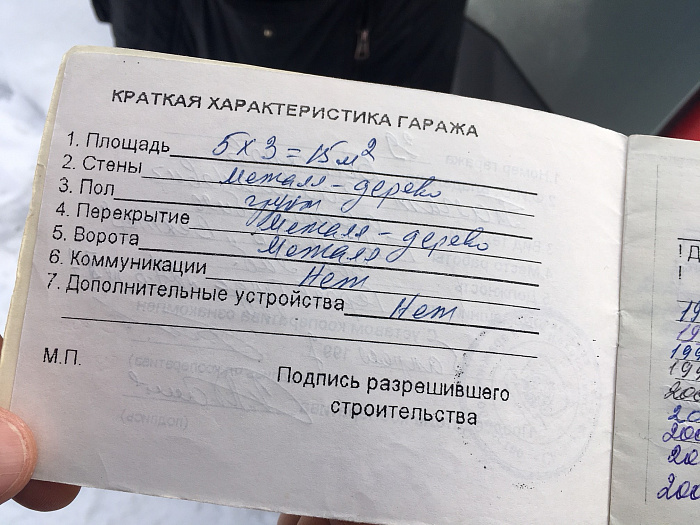 КРАТКАЯ ХАРАКТЕРИСТИКА ГАРАЖА
1. Площадь 5 х 3 = 15 м²
2. Стены металл - дерево
3. Пол грунт
4. Перекрытие металл - дерево
5. Ворота металл
6. Коммуникации Нет
7. Дополнительные устройства Нет
М.П.
Подпись разрешившего
строительства
! Д
!